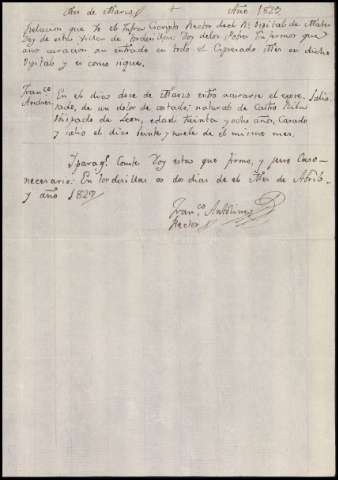 Mes de Marzo + Año 1829
Relacion que Yo el Infra escripto Rector de el R.l Ospital de Mater
Dey de esta Villa de Tordesillas: Doy de los Pobres Enfermos que
año curacion an entrado en todo el Espresado Mes en dicho
Ospital y es como sigue.
Franco En el dia doce de Marzo entro a curarse el espre-
Andres sado, de un dolor de costado: natural de Castro
Obispado de Leon, edad treinta y ocho años, Casado
y salio el dia veinte y nueve de el mismo mes.
Y para q.e Conste Doy esta que firmo, y juro Caso
necesario: En tordesillas a dos dias de el Mes de Abril
y año 1829
Fran.co Antolinez
Rector